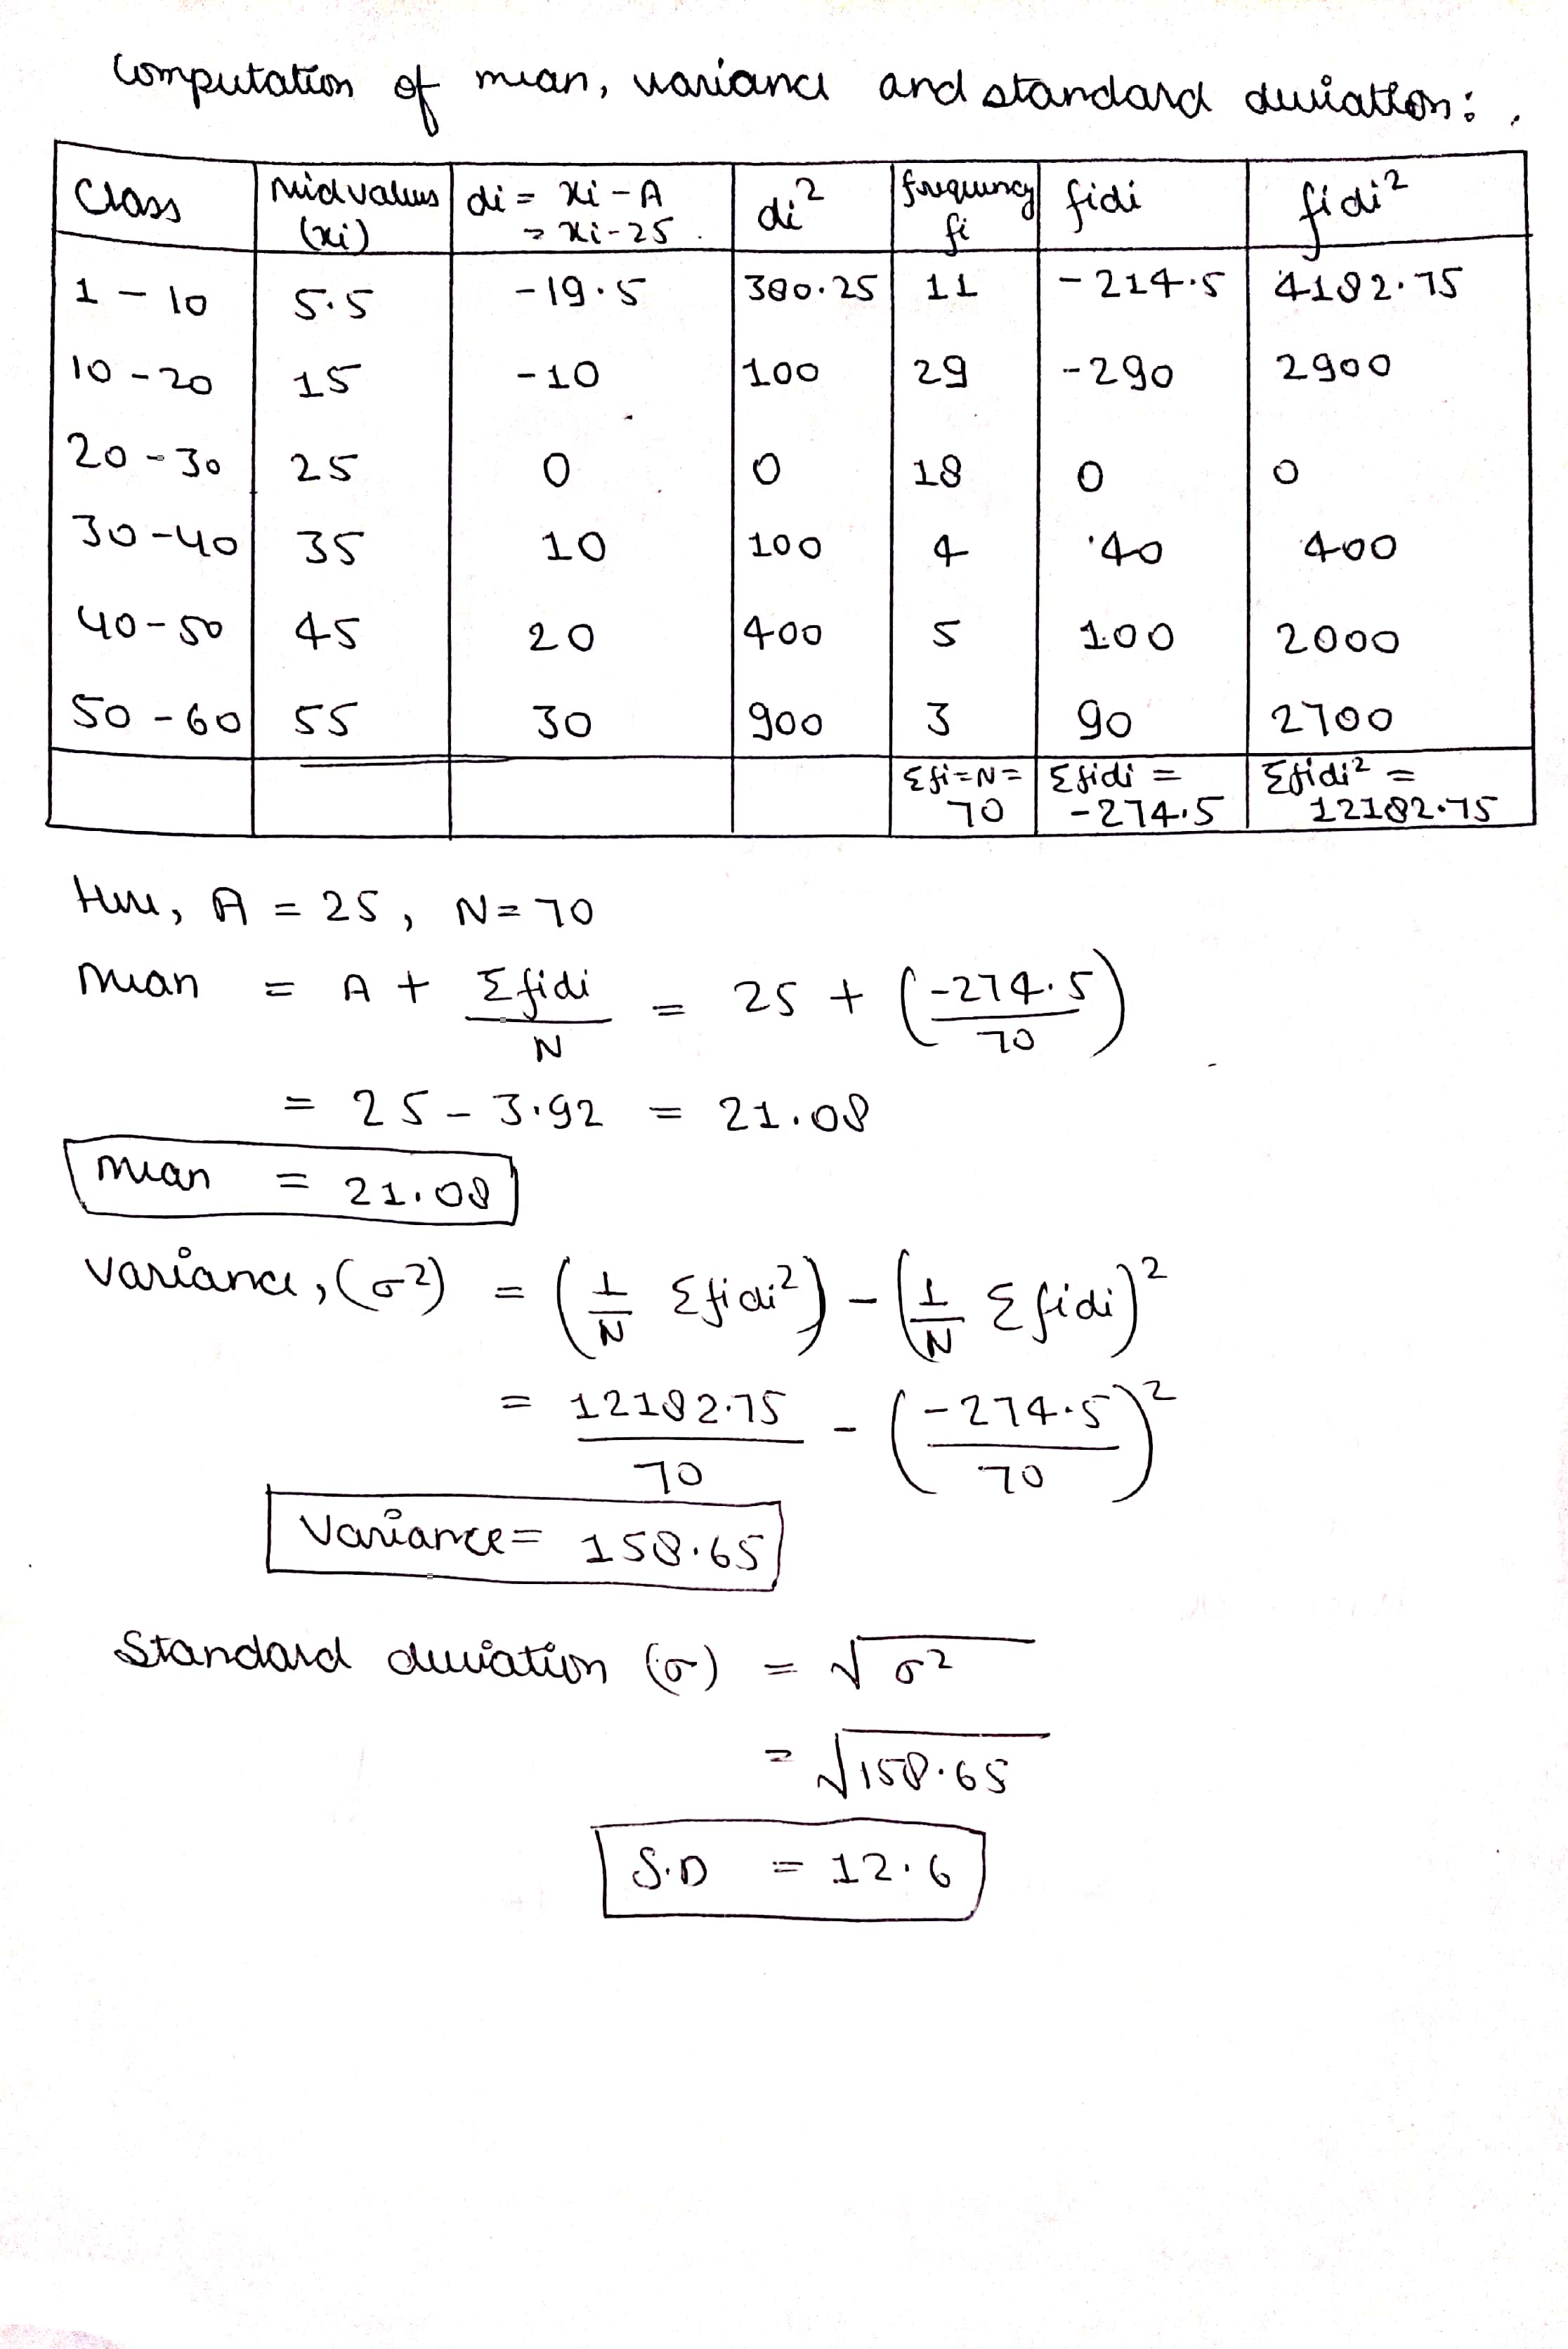 Computation of mean, variance and standard deviation:
Class | Mid values (xi) | di = xi - A = xi - 25 | di² | frequency fi | fidi | fidi²
1 - 10 | 5.5 | -19.5 | 380.25 | 11 | -214.5 | 4182.75
10 - 20 | 15 | -10 | 100 | 29 | -290 | 2900
20 - 30 | 25 | 0 | 0 | 18 | 0 | 0
30 - 40 | 35 | 10 | 100 | 4 | 40 | 400
40 - 50 | 45 | 20 | 400 | 5 | 100 | 2000
50 - 60 | 55 | 30 | 900 | 3 | 90 | 2700
Σfi = N = 70 | Σfidi = -274.5 | Σfidi² = 12182.75
Here, A = 25, N = 70
Mean = A + Σfidi / N = 25 + (-274.5 / 70)
= 25 - 3.92 = 21.08
Mean = 21.08
Variance, (σ²) = (1/N Σfidi²) - (1/N Σfidi)²
= 12182.75 / 70 - (-274.5 / 70)²
Variance = 158.65
Standard deviation (σ) = √σ²
= √158.65
S.D = 12.6